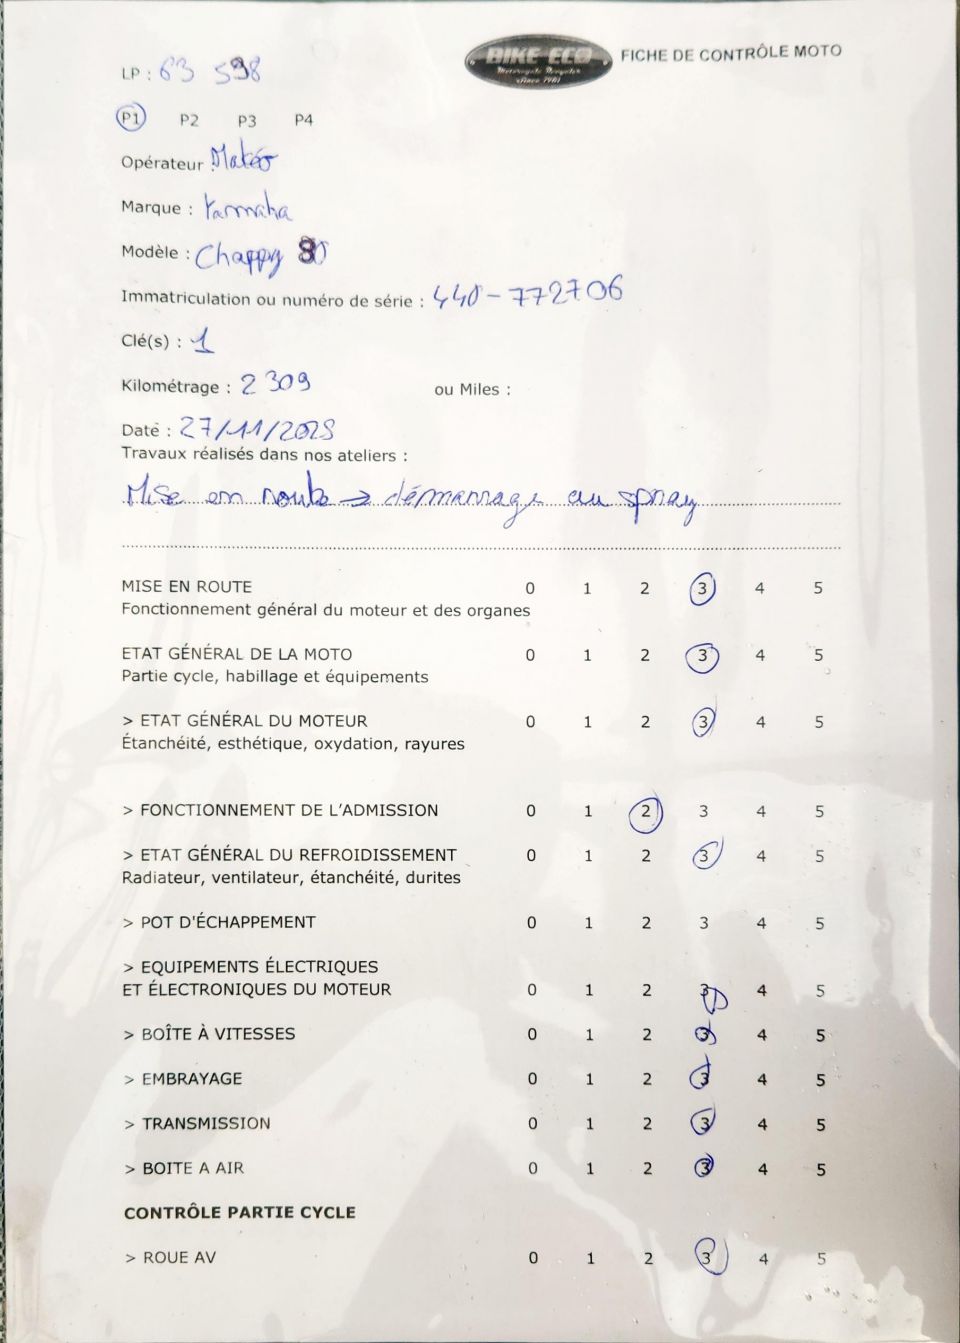 LP : 63 598
BIKE-ECO
Motorcycle Recycler
since 1981
FICHE DE CONTRÔLE MOTO
P1 P2 P3 P4
Opérateur : Matéo
Marque : Yamaha
Modèle : Chappy
Immatriculation ou numéro de série : 440-772706
Clé(s) : 1
Kilométrage : 2 309 ou Miles :
Date : 27/11/2025
Travaux réalisés dans nos ateliers :
Mise en route → démarrage au spray
MISE EN ROUTE 0 1 2 3 4 5
Fonctionnement général du moteur et des organes
ETAT GÉNÉRAL DE LA MOTO 0 1 2 3 4 5
Partie cycle, habillage et équipements
> ETAT GÉNÉRAL DU MOTEUR 0 1 2 3 4 5
Étanchéité, esthétique, oxydation, rayures
> FONCTIONNEMENT DE L'ADMISSION 0 1 2 3 4 5
> ETAT GÉNÉRAL DU REFROIDISSEMENT 0 1 2 3 4 5
Radiateur, ventilateur, étanchéité, durites
> POT D'ÉCHAPPEMENT 0 1 2 3 4 5
> EQUIPEMENTS ÉLECTRIQUES
ET ÉLECTRONIQUES DU MOTEUR 0 1 2 3 4 5
> BOÎTE À VITESSES 0 1 2 3 4 5
> EMBRAYAGE 0 1 2 3 4 5
> TRANSMISSION 0 1 2 3 4 5
> BOITE A AIR 0 1 2 3 4 5
CONTRÔLE PARTIE CYCLE
> ROUE AV 0 1 2 3 4 5